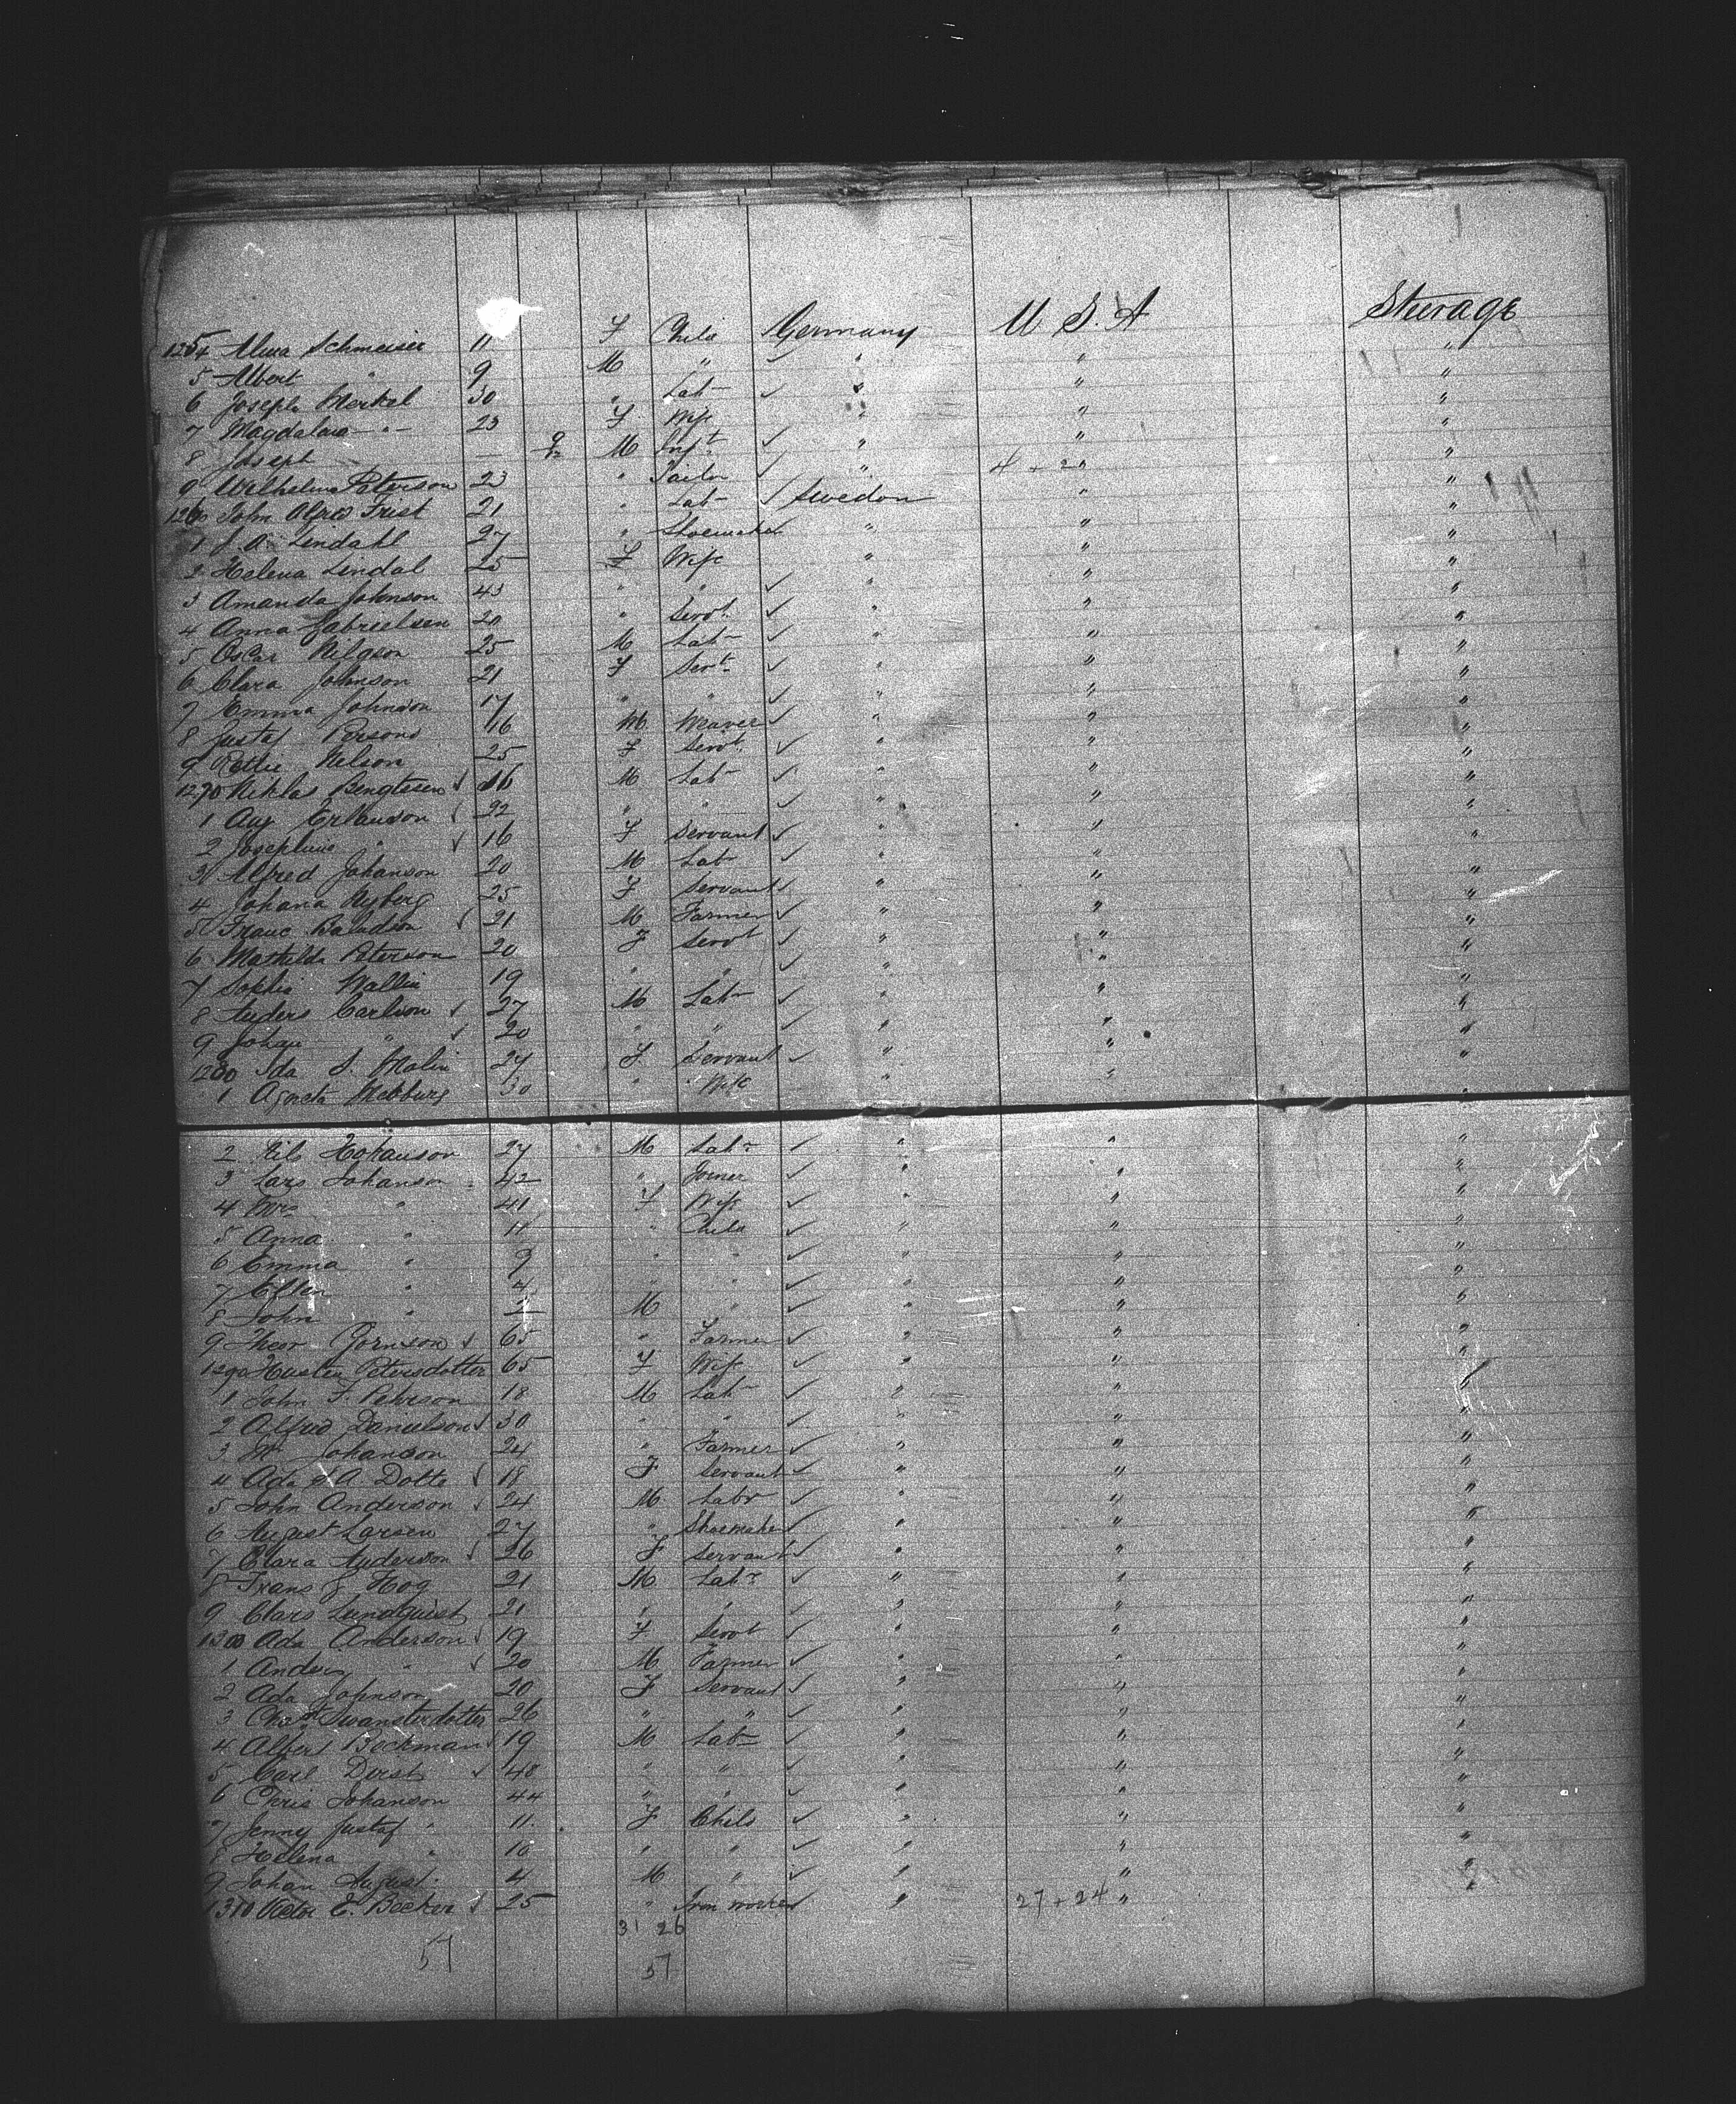 1254 Alma Schmeiser 11 F Child Germany U. S. A Steerage
5 Albert " 9 M " ✓ " " "
6 Joseph Merkel 30 " Labr ✓ " " "
7 Magdalena " 23 F Wife " " "
8 Joseph — 9/12 M Inft ✓ " " "
9 Wilhelm Peterson 23 " Tailor ✓ " 4 + 2 " "
1260 John Alfred Frist 21 " Labr ✓ Sweden " "
1 J. A. Lendahl 27 " Shoemaker ✓ " " "
2 Helena Lindal 25 F Wife " " "
3 Amanda Johnson 43 " " ✓ " " "
4 Anna Gabrielsen 20 " Servt. ✓ " " "
5 Oscar Nilgson 25 M Labr ✓ " " "
6 Clara Johnson 21 F Servt ✓ " " "
7 Emma Johnson 17 " " ✓ " " "
8 Gustaf Persons 16 M Weaver ✓ " " "
9 Nelson 25 F Servt. ✓ " " "
1270 Niklas Bengtesen ✓ 16 M Labr ✓ " " "
1 Aug Erlandson ✓ 22 " " ✓ " " "
2 Josephine " ✓ 16 F Servant ✓ " " "
3 Alfred Johanson 20 M Labr ✓ " " "
4 Johana Nyberg 25 F Servant ✓ " " "
5 Franc ✓ 21 M Farmer ✓ " " "
6 Mathilda Peterson 20 F Servt ✓ " " "
7 Sophia Wallin 19 " " ✓ " " "
8 Anders Carlson ✓ 27 M Labr ✓ " " "
9 Johan " ✓ 20 " " ✓ " " "
1280 Ida S. Malin 24 F Servant ✓ " " "
1 30 " Wife " " "
2 Nils Hokanson 27 M Labr ✓ " " "
3 Lars Johanson 42 " Joiner ✓ " " "
4 Mrs " 41 F Wife ✓ " " "
5 Anna " 11 " Child ✓ " " "
6 Emma " 9 " " ✓ " " "
7 Ellen " 4 " " ✓ " " "
8 John " 2 M " ✓ " " "
9 ✓ 65 " Farmer ✓ " " "
1290 Petersdotter 65 F Wife ✓ " " "
1 John F. Pehrson 18 M Labr ✓ " " "
2 Alfred Danielson ✓ 30 " " ✓ " " "
3 Johanson 24 " Farmer ✓ " " "
4 Ada A. Dotte ✓ 18 F Servant ✓ " " "
5 John Anderson ✓ 24 M Labr ✓ " " "
6 August Larsen 27 " Shoemaker ✓ " " "
7 Clara Anderson ✓ 26 F Servant ✓ " " "
8 Frans J Hog 21 M Labr ✓ " " "
9 Clars Lundquist 21 " " ✓ " " "
1300 Ada Anderson ✓ 19 F Servt ✓ " " "
1 Anders " ✓ 20 M Farmer ✓ " " "
2 Ada Johnson 20 F Servant ✓ " " "
3 Swansterdotter 26 " " ✓ " " "
4 Alfred Beckman ✓ 19 M Labr ✓ " " "
5 Carl Derst ✓ 48 " " ✓ " " "
6 Chris Johanson 44 " " ✓ " " "
7 Jenny Gustaf " 11 F Child ✓ " " "
8 Helena " 10 " " ✓ " " "
9 Johan August " 4 M " ✓ " " "
1310 Victor E. Becker ✓ 25 " Iron worker ✓ " 27 + 24 " "
31 26
57 57